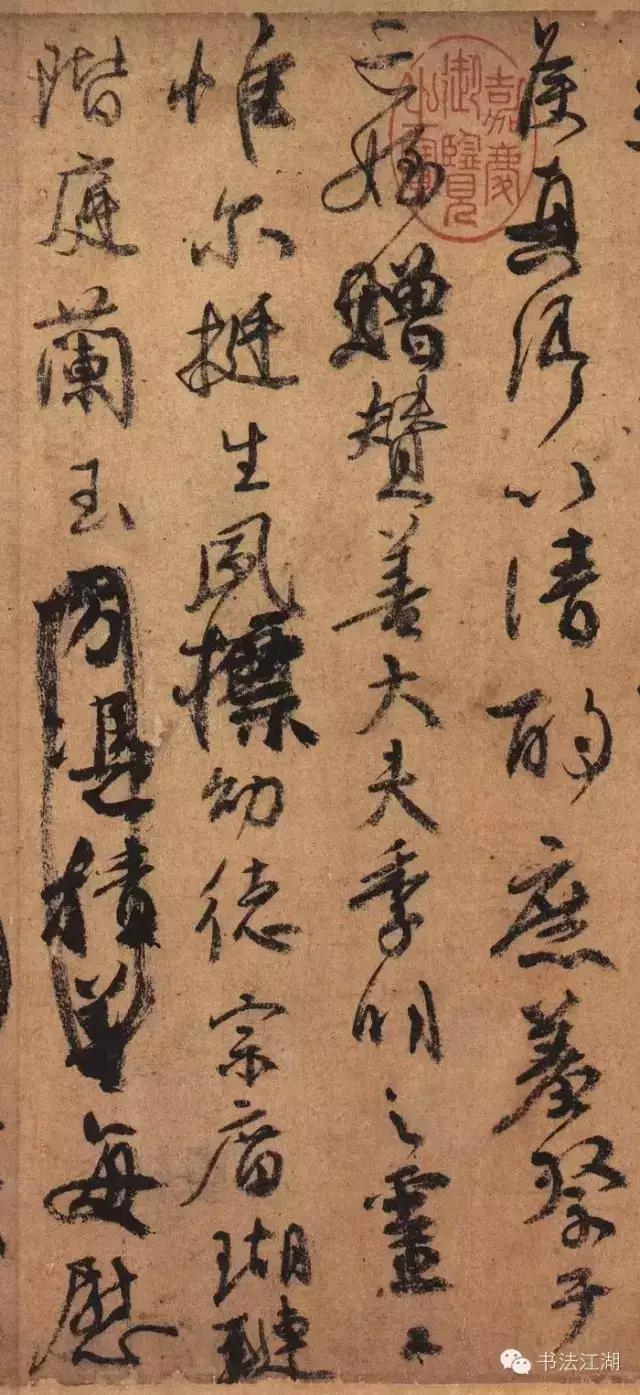 侯真卿以清酌庶羞祭于
亡姪贈贊善大夫季明之靈曰
惟尔挺生夙標幼德宗庿瑚璉
階庭蘭玉方憑積善每慰
嘉慶御覽之寶
书法江湖